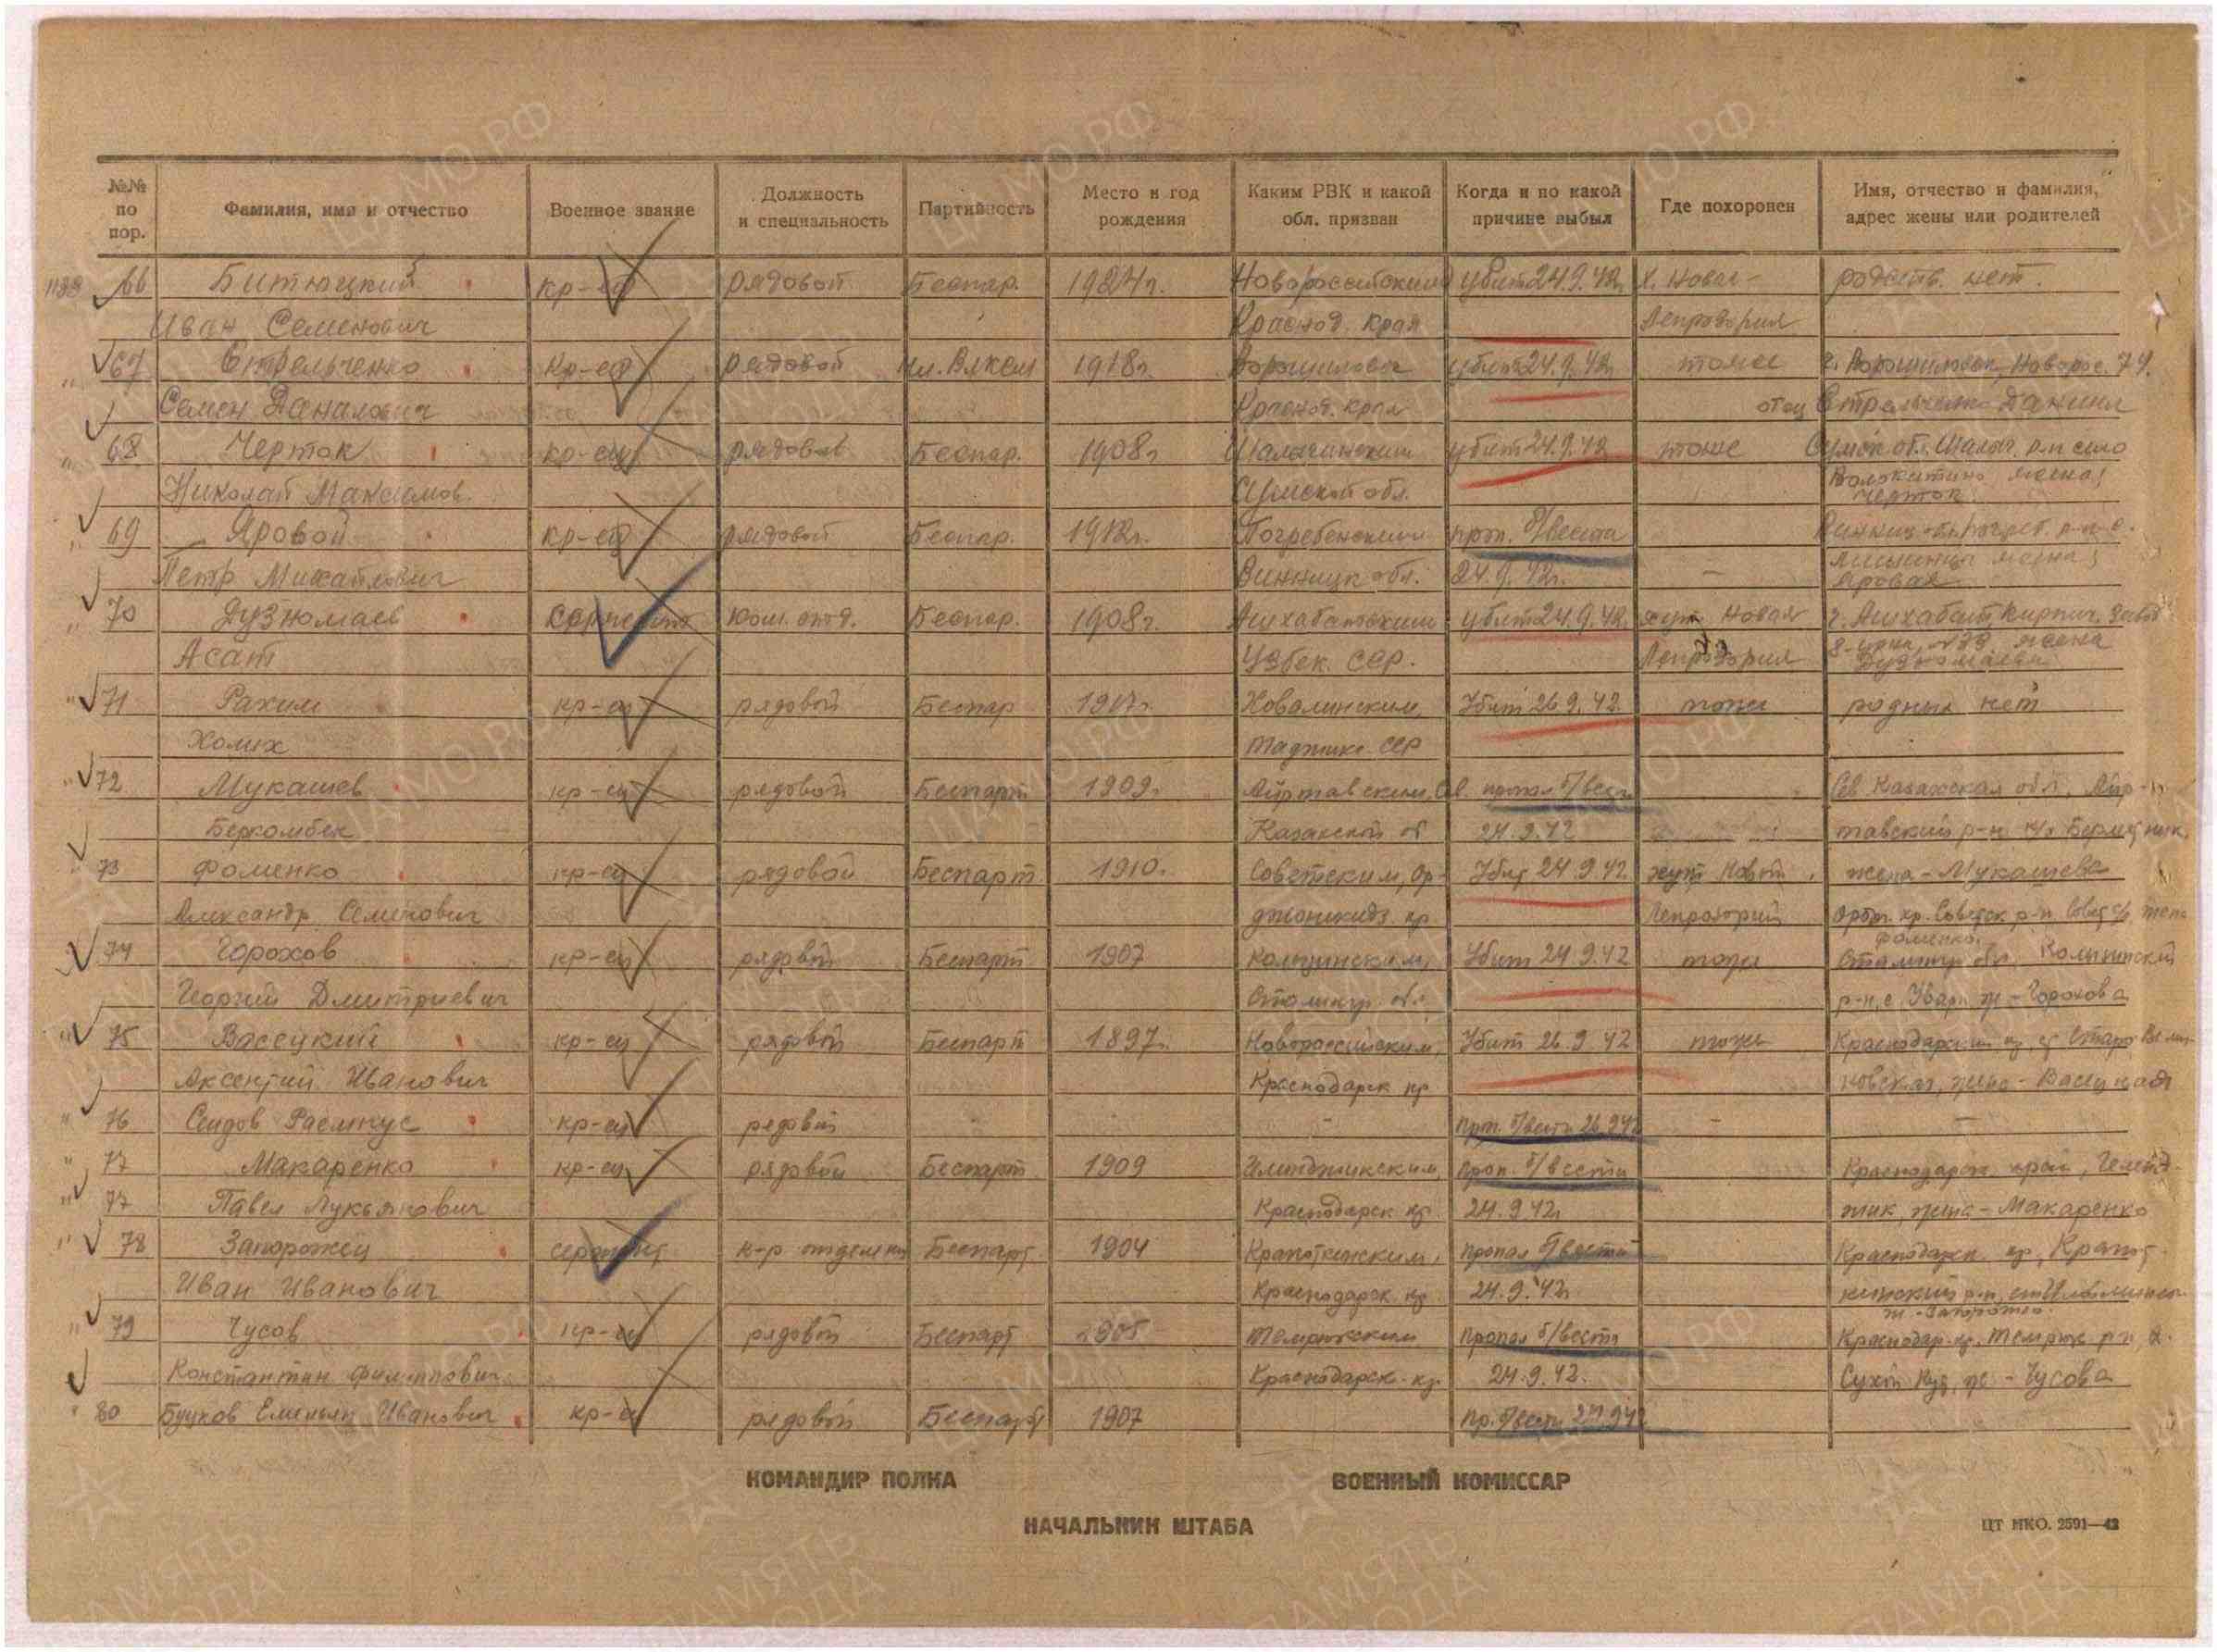 №№ по пор. Фамилия, имя и отчество Военное звание Должность и специальность Партийность Место и год рождения Каким РВК и какой обл. призван Когда и по какой причине выбыл Где похоронен Имя, отчество и фамилия, адрес жены или родителей
66 Битюцкий кр-ец рядовой Беспар. 1924г. Новороссийским убит 24.9.42г. х. Новая- родств. нет.
Иван Семенович Краснод. края Лепрозория
67 Стрельченко кр-ец рядовой чл. Влксм 1918г. убит 24.9.42г. тоже
Семен Данилович Краснод. края отец Стрельченко Данила
68 Черток кр-ец рядовой Беспар. 1908г. Шалыгинским убит 24.9.42 тоже Сумск. обл. Шалыг. р-н село
Николай Максимов. Сумской обл. Волокитино жена
Черток
69 Яровой кр-ец рядовой Беспар. 1912г. Погребенским проп. б/вести
Петр Михайлович Винницк обл. 24.9.42г. — жена
Яровая
70 Дузюмаев сержант ком. отд. Беспар. 1908г. Ашхабатским убит 24.9.42. хут. Новая г. Ашхабат, Кирпич. завод
Асат Узбек. ССР. Лепрозория жена
71 Рахим кр-ец рядовой Беспар 1917г. убит 26.9.42 тоже родных нет
Холих Таджикс. ССР
72 Мукашев кр-ец рядовой Беспарт 1909г. Айртавским, Св. пропал б/вести Сев Казахская обл. Айр-
Беркомбек Казахской об 24.9.42 тавский р-н
73 Фоменко кр-ец рядовой Беспарт. 1910. Советским, Ор- Убит 24.9.42 хут Новый жена - Мукашева
Александр Семенович джоникидз. кр Лепрозорий Советск р-н, жена
Фоменко.
74 Горохов кр-ец рядовой Беспарт 1907 Убит 24.9.42 тоже Сталингр. обл.
Георгий Дмитриевич Сталингр. обл. р-н, ж - Горохова
75 Васецкий кр-ец рядовой Беспарт 1897г. Новороссийским, Убит 26.9.42 тоже Краснодарский кр,
Аксентий Иванович Краснодарск кр. новская, жена - Васецкая
76 Сеидов кр-ец рядовой - - - проп. б/вести 26.9.42 - —
77 Макаренко кр-ец рядовой Беспарт 1909 проп. б/вести Краснодарск. край, Гелендж-
77 Павел Лукьянович Краснодарск кр. 24.9.42г. жик, жена - Макаренко
78 Запорожец сержант к-р отделен Беспарт. 1904 Кропоткинским, пропал б/вести Краснодарск кр, Кропот-
Иван Иванович Краснодарск кр. 24.9.42г. кинский р-н,
ж - Запорожец.
79 Чусов кр-ец рядовой Беспарт 1905 Темрюкским пропал б/вести Краснодар. кр. Темрюк р-н,
Константин Филиппович Краснодарск. кр. 24.9.42. ж - Чусова
80 Буцков Емельян Иванович кр-ец рядовой Беспарт 1907 пр. б/вести 24.9.42
КОМАНДИР ПОЛКА ВОЕННЫЙ КОМИССАР
НАЧАЛЬНИК ШТАБА
ЦТ НКО. 2591—42